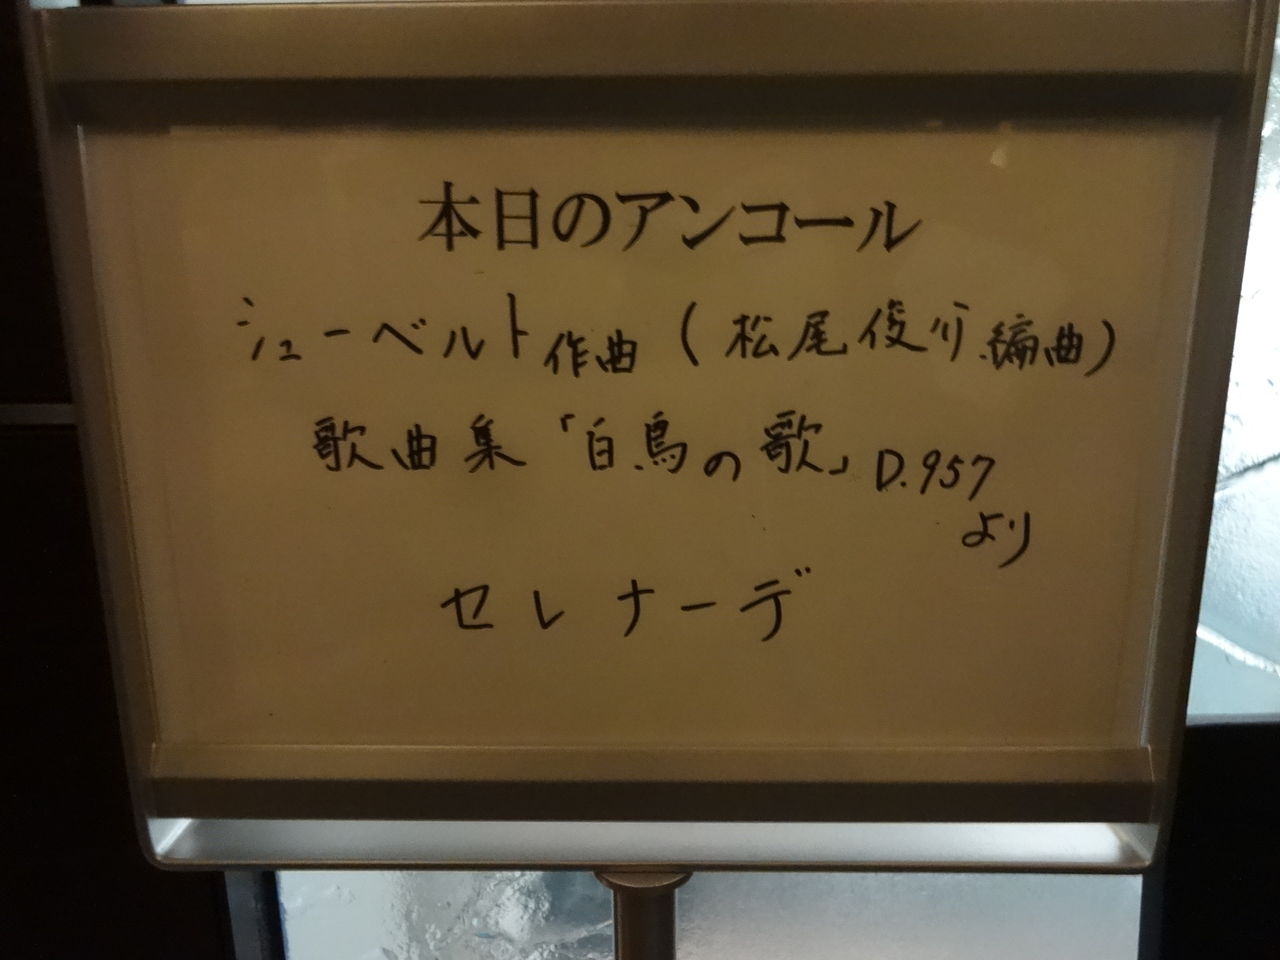 本日のアンコール
シューベルト作曲(松尾俊介編曲)
歌曲集「白鳥の歌」D.957
より
セレナーデ